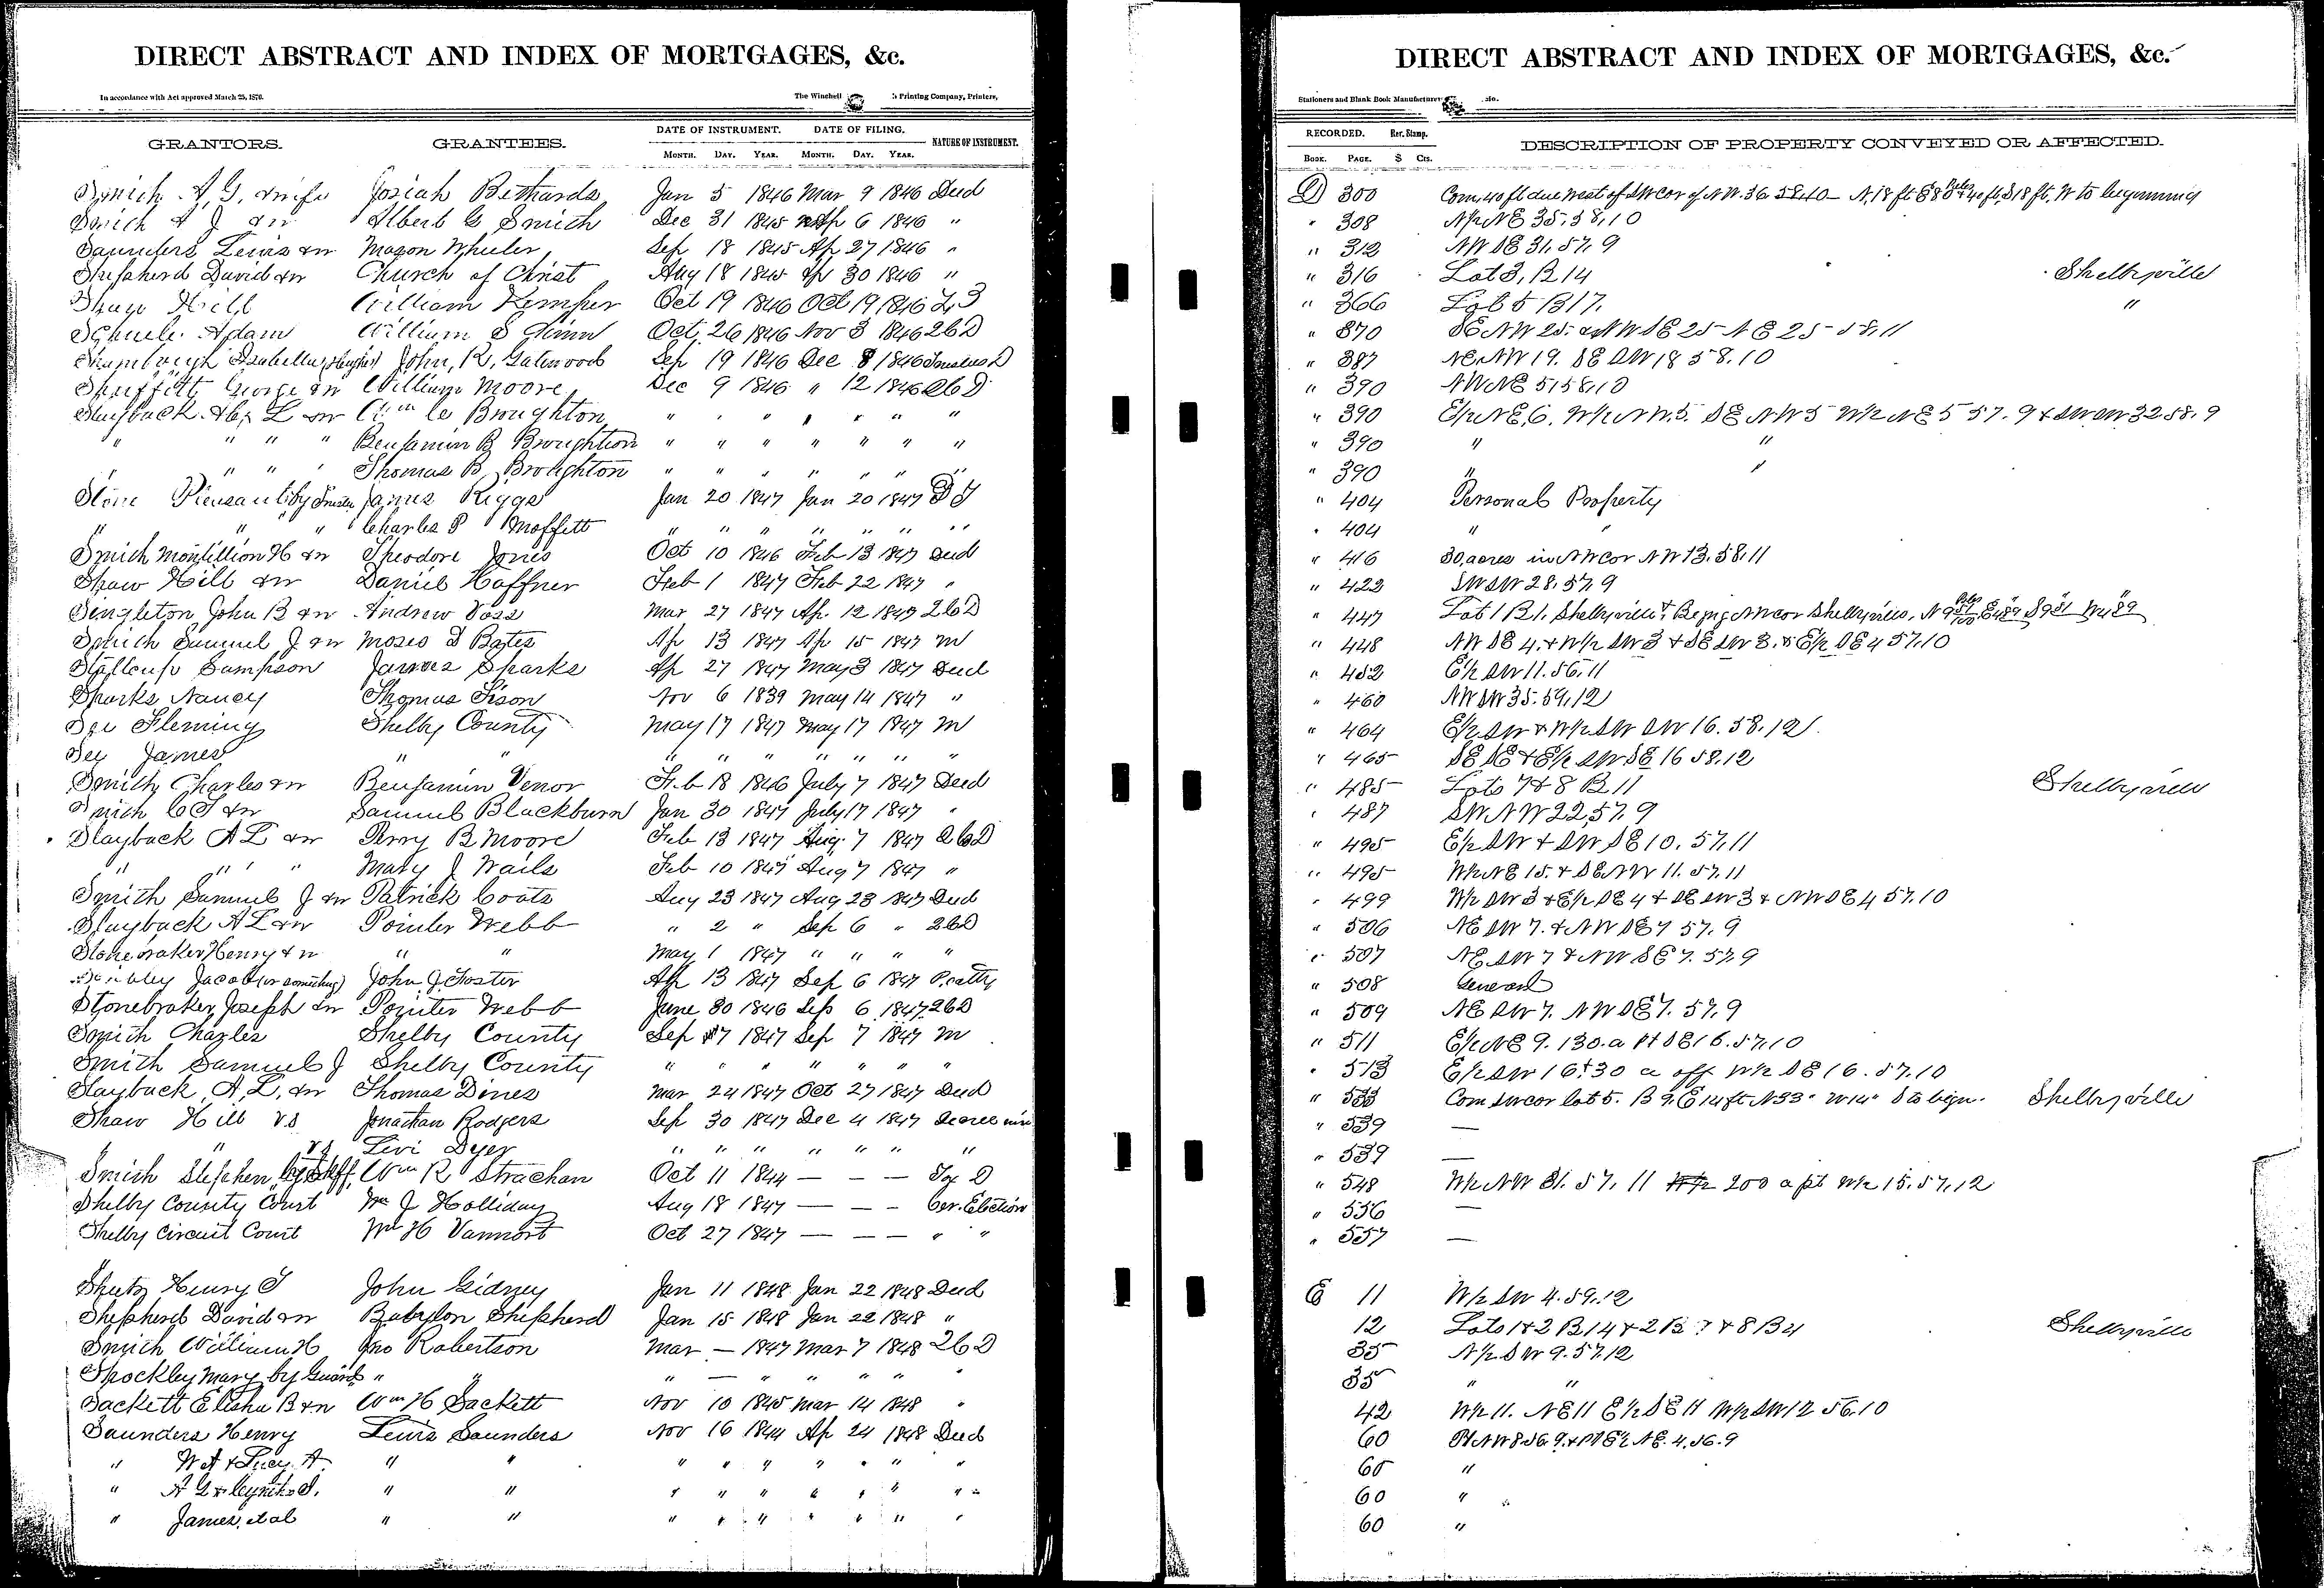 DIRECT ABSTRACT AND INDEX OF MORTGAGES, &c.
In accordance with Act approved March 25, 1870. The Winchell Printing Company, Printers,
GRANTORS. GRANTEES. DATE OF INSTRUMENT. DATE OF FILING. NATURE OF INSTRUMENT.
MONTH. DAY. YEAR. MONTH. DAY. YEAR.
Smith A, G, & wife Josiah Bethards Jan 5 1846 Mar 9 1846 Deed
Smith A J &w Albert G Smith Dec 31 1845 Ap 6 1846 "
Saunders Lewis &w Mason Wheeler Sep 18 1845 Ap 27 1846 "
Shepherd David &w Church of Christ Aug 18 1845 Ap 30 1846 "
Shaw Hill William Kemper Oct 19 1846 Oct 19 1846
Adam William S Oct 26 1846 Nov 3 1846 Q C D
John, R, Gatewood Sep 19 1846 Dec 8 1846
George &w William Moore Dec 9 1846 " 12 1846 Q C D
Slayback L &w Wm C Broughton " " " " " " "
" " " " Benjamin B Broughton " " " " " " "
" " " " Thomas B Broughton " " " " " " "
Stone by Trustee James Riggs Jan 20 1847 Jan 20 1847 D T
" " " Charles P Moffett " " " " " " "
Smith Montillion H &w Theodore Jones Oct 10 1846 Feb 13 1847 Deed
Shaw Hill &w Daniel Haffner Feb 1 1847 Feb 22 1847 "
Singleton John B &w Andrew Voss Mar 27 1847 Ap. 12 1847 Q C D
Smith Samuel J &w Moses D Bates Ap 13 1847 Ap 15 1847 M
Stallcup Sampson James Sparks Ap 27 1847 May 3 1847 Deed
Sparks Nancy Thomas Sison Nov 6 1839 May 14 1847 "
See Fleming Shelby County May 17 1847 May 17 1847 M
See James " " " " " " " " "
Smith Charles &w Benjamin Venor Feb 18 1846 July 7 1847 Deed
Smith C S &w Samuel Blackburn Jan 30 1847 July 17 1847 "
Slayback A L &w Perry B Moore Feb 13 1847 Aug. 7 1847 Q C D
" " " " Mary J Wails Feb 10 1847 Aug 7 1847 "
Smith Samuel J &w Patrick Coats Aug 23 1847 Aug 23 1847 Deed
Slayback A L &w Pointer Webb " 2 " Sep 6 " Q C D
Stonebraker Henry & w " " May 1 1847 " " " "
Jacob (or something) John J Foster Ap 13 1847 Sep 6 1847 P. atty
Stonebraker Joseph &w Pointer Webb June 30 1846 Sep 6 1847 Q C D
Smith Charles Shelby County Sep 7 1847 Sep 7 1847 M
Smith Samuel J Shelby County " " " " " " "
Slayback, A, L, &w Thomas Dines Mar 24 1847 Oct 27 1847 Deed
Shaw Hill vs Jonathan Rodgers Sep 30 1847 Dec 4 1847 Decree
" vs Levi Dyer " " " " " " "
Smith Stephen, by Shff, Wm R Strachan Oct 11 1844 — — — Tax D
Shelby County Court Wm J Holliday Aug 18 1847 — — — Cer. Election
Shelby Circuit Court Wm H Vannort Oct 27 1847 — — — " "
Shutz Henry T John Gidney Jan 11 1848 Jan 22 1848 Deed
Shepherd David &w Babylon Shepherd Jan 15 1848 Jan 22 1848 "
Smith William H Jno Robertson Mar — 1847 Mar 7 1848 Q C D
Shockley Mary by Guard " " " — " " " " "
Sackett Elisha B &w Wm H Sackett Nov 10 1845 Mar 14 1848 "
Saunders Henry Lewis Saunders Nov 16 1844 Ap 24 1848 Deed
" W A & Lucy A " " " " " " " " "
" A G & Cynthia S. " " " " " " " " "
" James, et al " " " " " " " " "
DIRECT ABSTRACT AND INDEX OF MORTGAGES, &c.
Stationers and Blank Book Manufacturers
RECORDED. Rev. Stamp. DESCRIPTION OF PROPERTY CONVEYED OR AFFECTED.
BOOK. PAGE. $ Cts.
D 300 Com, 40 ft due West of SW cor of NW. 36 58.10 — N, 18 ft 40 ft, S 18 ft, W to beginning
" 308 N½ NE 35, 58, 10
" 312 NW SE 31, 57, 9
" 316 Lot 3, B 14 Shelbyville
" 366 Lot 5 B 17. "
" 370 SE NW 25 & NW SE 25 - NE 25 - 58, 11
" 387 NE NW 19. SE SW 18 58. 10
" 390 NW NE 5, 58, 10
" 390 E½ NE 6. W½ NW. 5. SE NW 5 W½ NE 5 57. 9 & SW SW 32 58. 9
" 390 " "
" 390 " "
" 404 Personal Property
" 404 " "
" 416 30, acres in NW cor NW 13. 58. 11
" 422 SW SW 28, 57, 9
" 447 Lot 1 B 1. Shelbyville &
" 448 NW SE 4. & W½ SW 3 & SE SW 3. & E½ SE 4 57. 10
" 452 E½ SW 11. 56. 11
" 460 NW SW 35. 59, 12
" 464 E½ SW & W½ SW SW 16. 58. 12
" 465 SE SE & E½ SW SE 16 58. 12
" 485 Lots 7 & 8 B 11 Shelbyville
" 487 SW NW 22, 57, 9
" 495 E½ SW & SW SE 10. 57, 11
" 495 W½ NE 15. & SE NW 11. 57. 11
" 499 W½ SW 3 & E½ SE 4 & SE SW 3 & NW SE 4 57. 10
" 506 NE SW 7. & NW SE 7 57. 9
" 507 NE SW 7 & NW SE 7. 57. 9
" 508 General
" 509 NE SW 7. NW SE 7. 57, 9
" 511 E½ NE 9. 130. a Pt SE 16. 57, 10
" 513 E½ SW 16 & 30 a off W½ SE 16. 57. 10
" 533 Com SW cor lot 5. B 9. E 14 ft N 33" W 14" S to bign. Shelbyville
" 539 —
" 539 —
" 548 W½ NW 31. 57. 11 200 a pt W½ 15. 57, 12
" 556 —
" 557 —
E 11 W½ SW 4. 59. 12
12 Lots 1 & 2 B 14 & 2 B 7 & 8 B 4 Shelbyville
35 N½ SW 9. 57. 12
35 " "
42 W½ 11. NE 11 E½ SE 11 W½ SW 12 56. 10
60 Pt NW 8. 56. 9. & Pt E½ NE. 4. 56. 9
60 "
60 " "
60 "